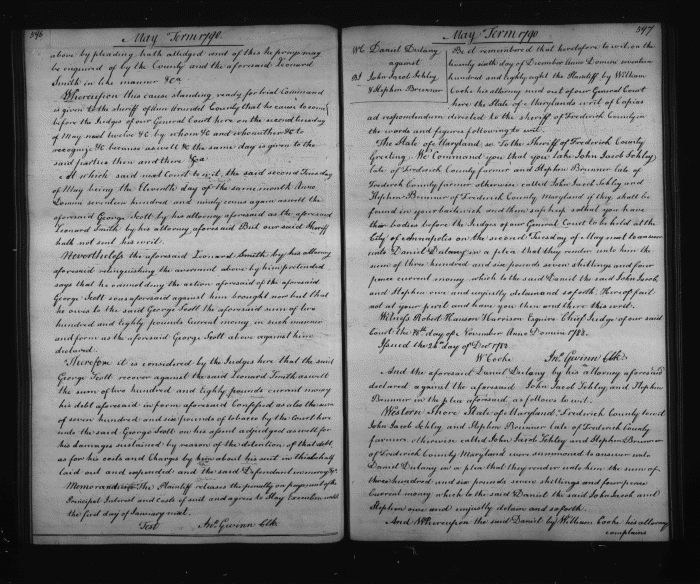 546
May Term 1790.
above by pleading hath alledged and of this he prays may
be enquired of by the County and the aforesaid Leonard
Smith in like manner &Ca
Whereupon this cause standing ready for trial Command
is given to the sheriff of Ann Arundel County that he cause to come
before the Judges of our General Court here on the second tuesday
of May next twelve &C by whom &C and who neither &C to
recognize &C because as well &C the same day is given to the
said parties then and there &Ca
At which said next Court to wit, the said second Tuesday
of May being the Eleventh day of the same month Anno
Domini seventeen hundred and ninety comes again as well the
aforesaid George Scott by his attorney aforesaid as the aforesaid
Leonard Smith by his attorney aforesaid But our said Sheriff
hath not sent his writ.
Nevertheless the aforesaid Leonard Smith by his attorney
aforesaid relinquishing the averment above by him pretended
says that he cannot deny the action aforesaid of the aforesaid
George Scott aforesaid against him brought nor but that
he owes to the said George Scott the aforesaid sum of two
hundred and eighty pounds Current money in such manner
and form as the aforesaid George Scott above against him
declared.
Therefore it is considered by the Judges here that the said
George Scott recover against the said Leonard Smith as well
the sum of two hundred and eighty pounds current money
his debt aforesaid in form aforesaid Confessed as also the sum
of seven hundred and six pounds of tobacco by the Court here
unto the said George Scott on his assent adjudged as well for
his damages sustained by reason of the detention of that debt,
as for his costs and Charges by him about his suit in this behalf
laid out and expended and the said Defendant in mercy &c.
Memorandum The Plaintiff releases the penalty on payment of the
Principal Interest and Costs of suit and agrees to Stay Execution until
the first day of January next.
Test Jno. Gwinn Clk
547
May Term 1790
WC Daniel Dulany
against
John Jacob Sehley
& Stephen Brunner
Be it remembered that heretofore to wit on the
twenty ninth day of December Anno Domini seventeen
hundred and eighty eight the Plaintiff by William
Cooke his attorney sued out of our General Court
here the State of Marylands writ of Capias
ad respondendum directed to the sheriff of Frederick County in
the words and figures following to wit.
The State of Maryland, ss To the Sheriff of Frederick County
Greeting. We Command you that you take John Jacob Sehley
late of Frederick County farmer and Stephen Brunner late of
Frederick County farmer otherwise called John Jacob Sehley and
Stephen Brunner of Frederick County Maryland if they shall be
found in your bailiwick and them safe keep so that you have
their bodies before the Judges of our General Court to be held at the
City of Annapolis on the second Tuesday of May next to answer
unto Daniel Dulany in a plea that they render unto him the
sum of three hundred and six pounds seven shillings and four
pence current money which to the said Daniel the said John Jacob
and Stephen owe and unjustly detain and so forth. Hereof fail
not at your peril and have you then and there this writ.
Witness Robert Hanson Harrison Esquire Chief Judge of our said
Court the day of November Anno Domini 1788.
Issued the day of Decr 1788
W Cooke Jno. Gwinn Clk.
And the aforesaid Daniel Dulany by his attorney aforesaid
declared against the aforesaid John Jacob Sehley and Stephen
Brunner in the plea aforesaid as follows to wit.
Western Shore State of Maryland, Frederick County to wit
John Jacob Sehley and Stephen Brunner late of Frederick County
farmers otherwise called John Jacob Sehley and Stephen Brunner
of Frederick County Maryland were summoned to answer unto
Daniel Dulany in a plea that they render unto him the sum of
three hundred and six pounds seven shillings and four pence
Current money which to the said Daniel the said John Jacob and
Stephen owe and unjustly detain and so forth.
And Whereupon the said Daniel by William Cooke his attorney
complains